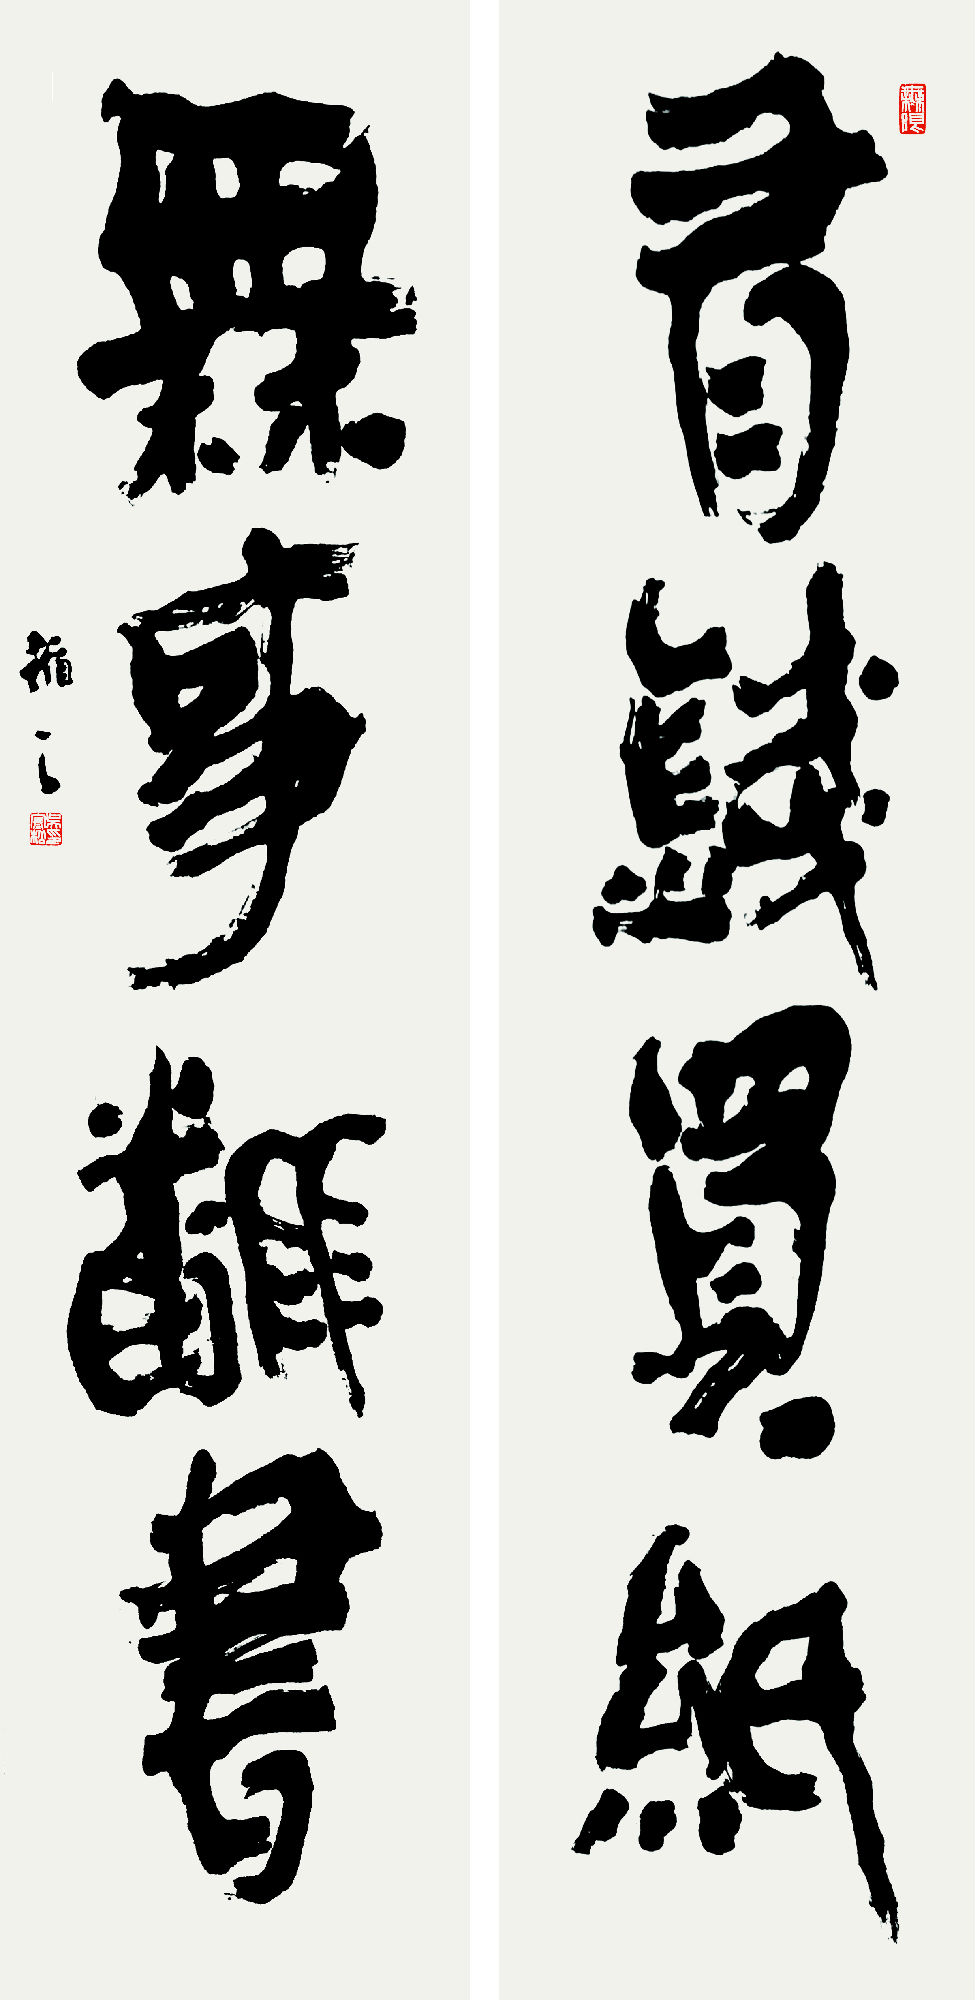 有錢買紙
無事翻書